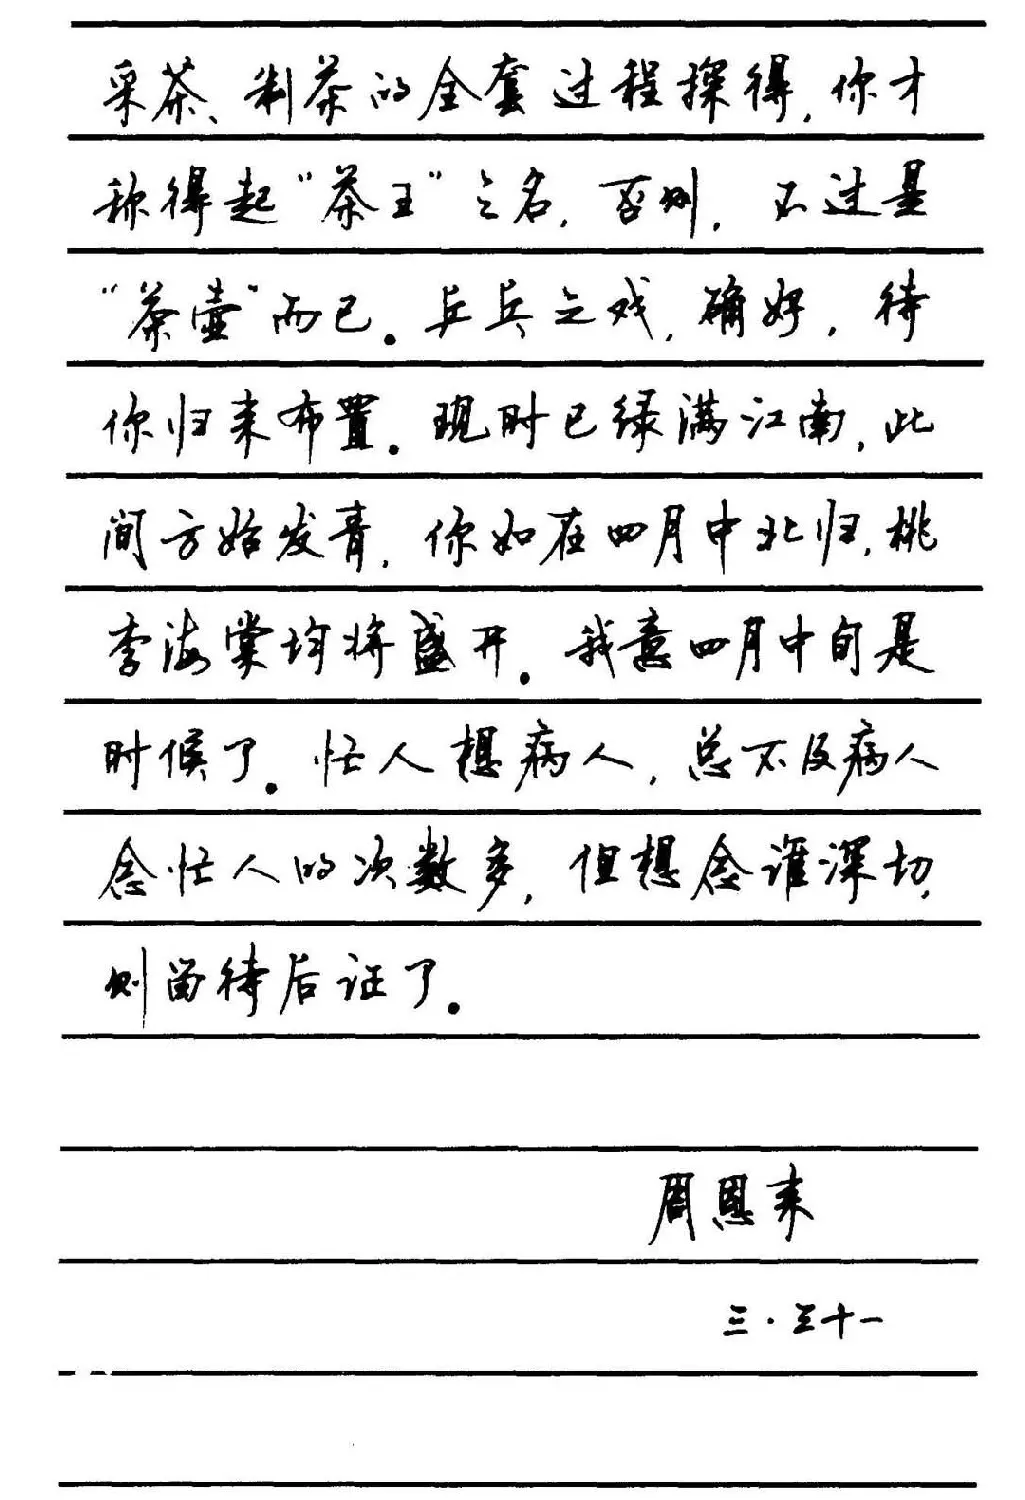 采茶、制茶的全套过程探得，你才
称得起“茶王”之名，否则，不过是
“茶壶”而已。乒乓之戏，确好，待
你归来布置。现时已绿满江南，此
间方始发青，你如在四月中北归，桃
李海棠均将盛开。我意四月中旬是
时候了。忙人想病人，总不及病人
念忙人的次数多，但想念谁深切，
则留待后证了。
周恩来
三·三十一